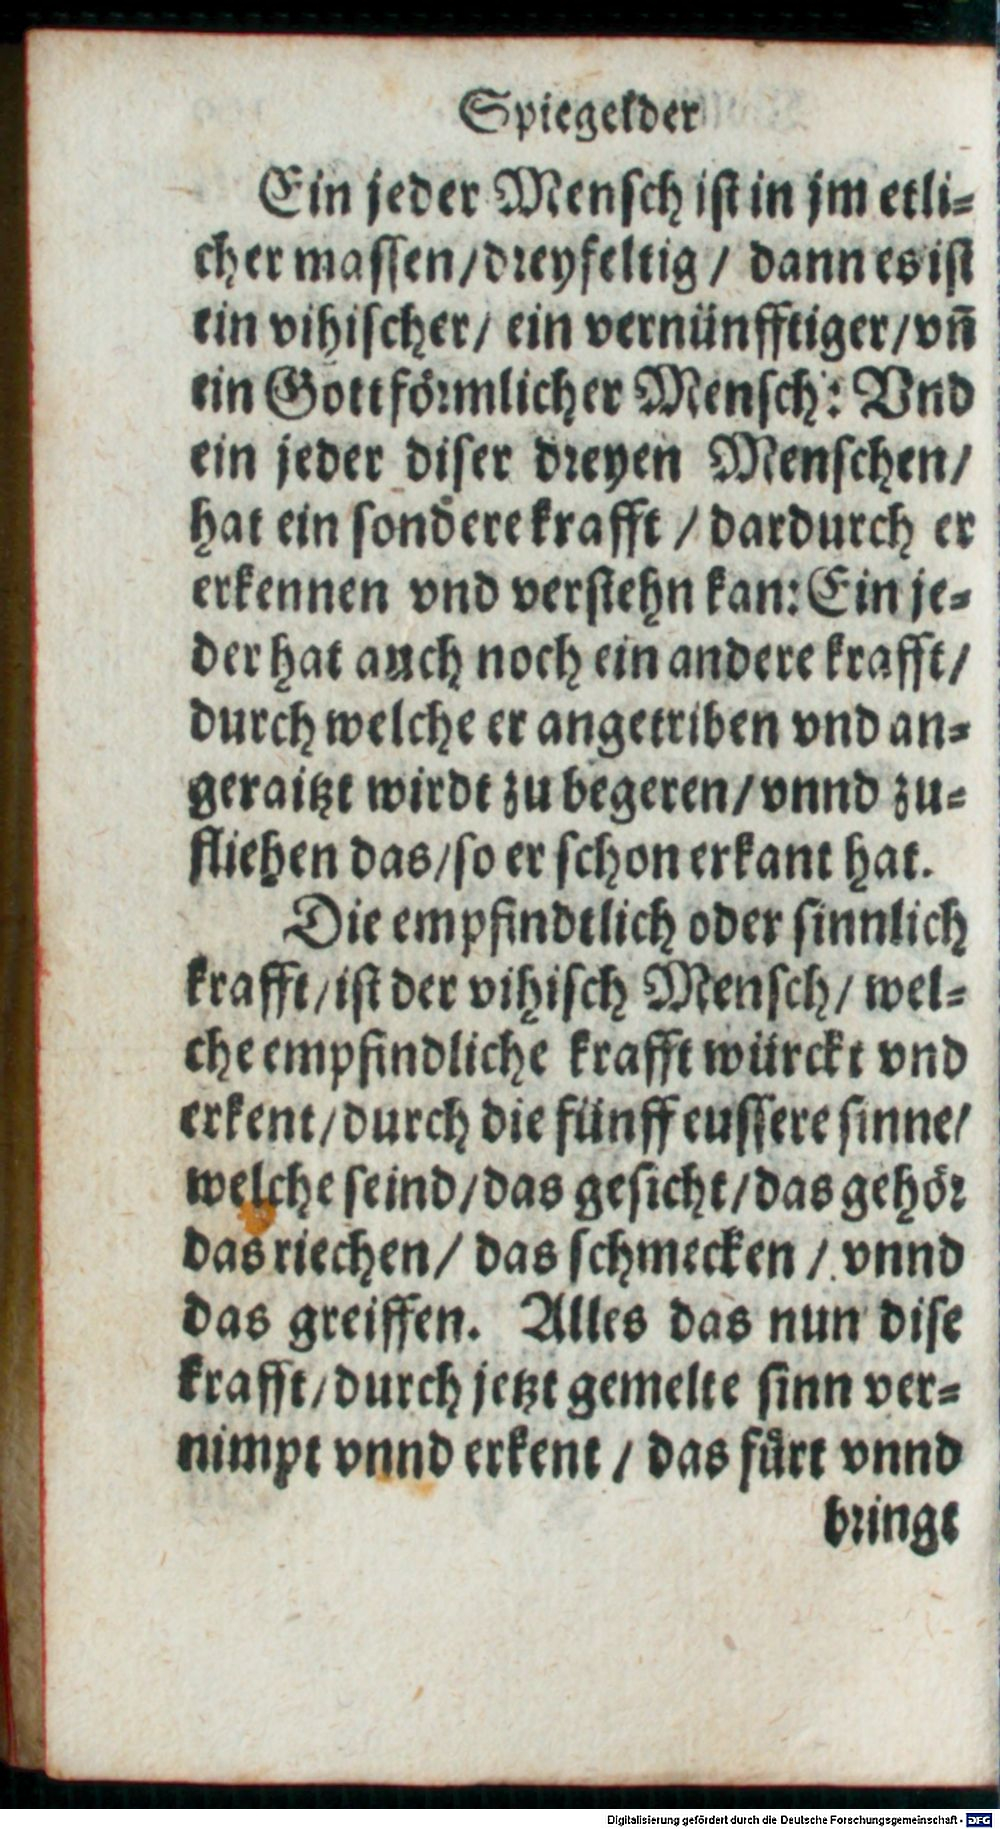 Spiegel der
Ein jeder Mensch ist in jm etli⸗
cher massen/dreyfeltig / dann es ist
ein vihischer/ ein vernünfftiger/vn̄
ein Gottförmlicher Mensch: Vnd
ein jeder diser dreyen Menschen/
hat ein sondere krafft / dardurch er
erkennen vnd verstehn kan: Ein je⸗
der hat auch noch ein andere krafft/
durch welche er angetriben vnd an⸗
geraitzt wirdt zu begeren/vnnd zu⸗
fliehen das/so er schon erkant hat.
Die empfindtlich oder sinnlich
krafft/ist der vihisch Mensch/ wel⸗
che empfindliche krafft würckt vnd
erkent/durch die fünff eussere sinne/
welche seind/das gesicht/das gehör
das riechen/ das schmecken / vnnd
das greiffen. Alles das nun dise
krafft/durch jetzt gemelte sinn ver⸗
nimpt vnnd erkent / das fürt vnnd
bringt
Digitalisierung gefördert durch die Deutsche Forschungsgemeinschaft - DFG